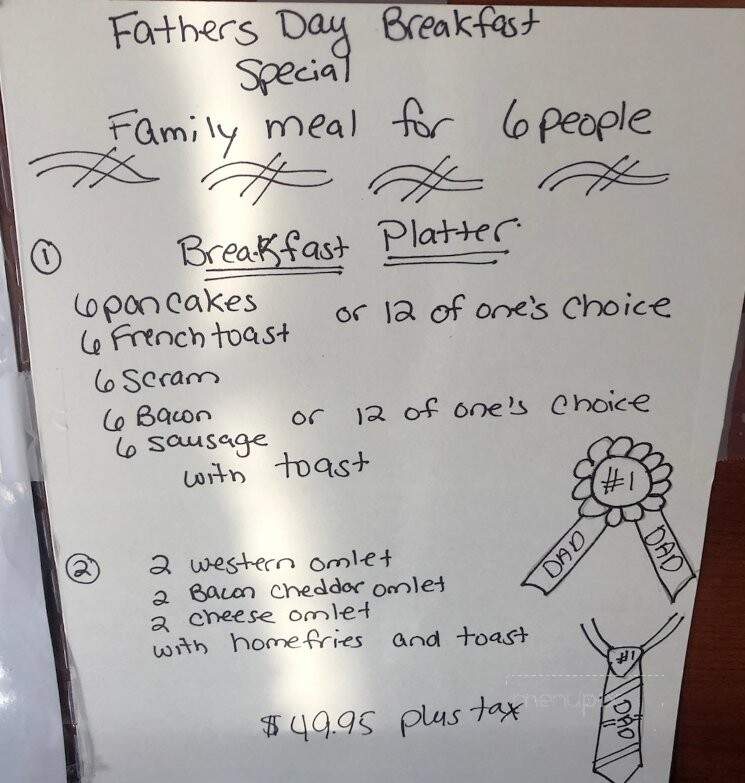 Fathers Day Breakfast
Special
Family meal for 6 people
① Breakfast Platter
6 pancakes or 12 of one's choice
6 French toast
6 Scram
6 Bacon or 12 of one's choice
6 sausage
with toast
#1
DAD DAD
② 2 western omlet
2 Bacon cheddar omlet
2 cheese omlet
with homefries and toast
#1
DAD
$49.95 plus tax